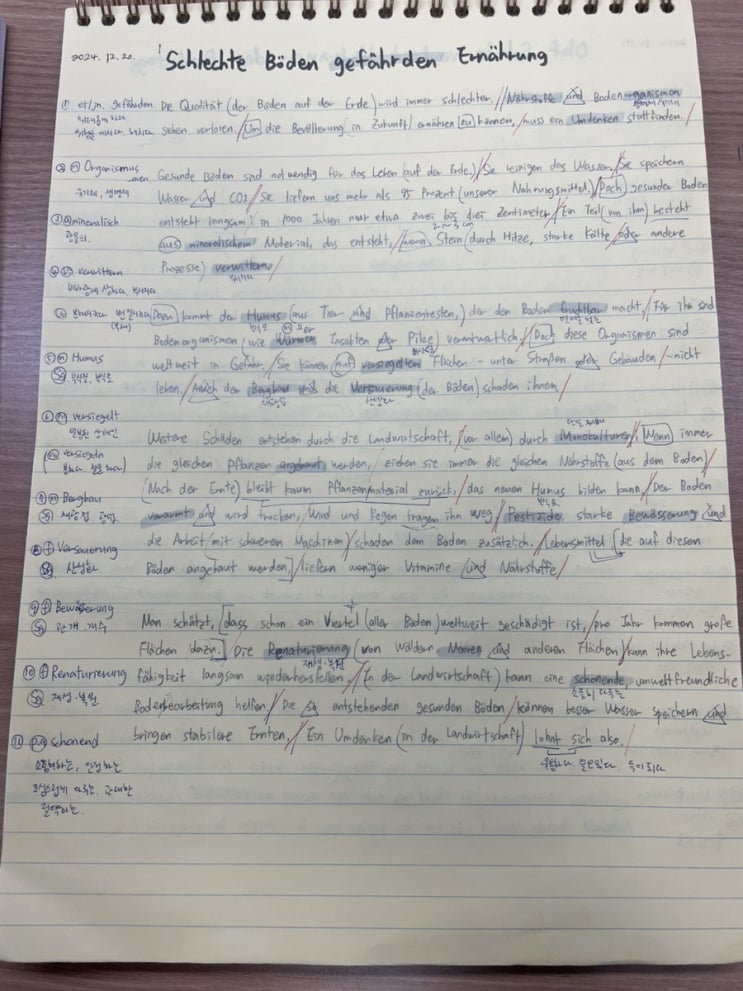 2024. 12. 20. Schlechte Böden gefährden Ernährung
① et/jn. gefährden Die Qualität (der Böden auf der Erde) wird immer schlechter. Nährstoffe und Bodenorganismen
gehen verloren. Um die Bevölkerung (in Zukunft) ernähren zu können, muss ein Umdenken stattfinden.
② ⓜ Organismus
-men
유기체, 생명체
Gesunde Böden sind notwendig für das Leben (auf der Erde.) Sie reinigen das Wasser, Sie speichern
Wasser und CO2. Sie liefern uns mehr als 95 Prozent (unserer Nahrungsmittel.) Doch gesunder Boden
③ ⓐ mineralisch
광물의.
entsteht langsam: in 1000 Jahren nur etwa zwei bis drei Zentimeter. Ein Teil (von ihm) besteht
2~3 cm
aus mineralischem Material, das entsteht, wenn Stein (durch Hitze, starke Kälte oder andere
Prozesse) verwittern.
④ verwittern
Dazu kommt der Humus (aus Tier- und Pflanzenresten,) der den Boden fruchtbar macht. Für ihn sind
부식토
Bodenorganismen (wie Würmer Insekten oder Pilze) verantwortlich. Doch diese Organismen sind
⑤ ⓜ Humus
Sg 부식질, 부식토
weltweit in Gefahr. Sie können auf versiegelten Flächen - unter Straßen oder Gebäuden - nicht
leben. Auch der Bergbau und die Versauerung (der Böden) schaden ihnen.
⑥ versiegelt
versiegeln
Weitere Schäden entstehen durch die Landwirtschaft, (vor allem) durch Monokulturen. Wenn immer
die gleichen Pflanzen angebaut werden, ziehen sie immer die gleichen Nährstoffe (aus dem Boden)
(Nach der Ernte) bleibt kaum Pflanzenmaterial zurück, das neuen Humus bilden kann. Der Boden
부식토
⑦ ⓜ Bergbau
Sg 채광업, 광업
verarmt und wird trocken, Wind und Regen tragen ihn weg. Pestizide, starke Bewässerung und
⑧ ⓕ Versauerung
Sg 산성화
die Arbeit (mit schweren Maschinen) schaden dem Boden zusätzlich. Lebensmittel die auf diesen
Böden angebaut werden, liefern weniger Vitamine und Nährstoffe.
⑨ ⓕ Bewässerung
Sg 관개, 개수
Man schätzt, dass schon ein Viertel (aller Böden) weltweit geschädigt ist, pro Jahr kommen große
Flächen dazu. Die Renaturierung (von Wäldern Mooren und anderen Flächen) kann ihre Lebens-
재생·복원
⑩ ⓕ Renaturierung
Sg 재생·복원
fähigkeit langsam wiederherstellen. (In der Landwirtschaft) kann eine schonende, umweltfreundliche
Bodenbearbeitung helfen. Die so entstehenden gesunden Böden können besser Wasser speichern und
⑪ schonend
bringen stabilere Ernten. Ein Umdenken (in der Landwirtschaft) lohnt sich also.
유용하다. 쓸모있다. 득이 되다
조심스럽게 다루는, 관대한
절약하는.